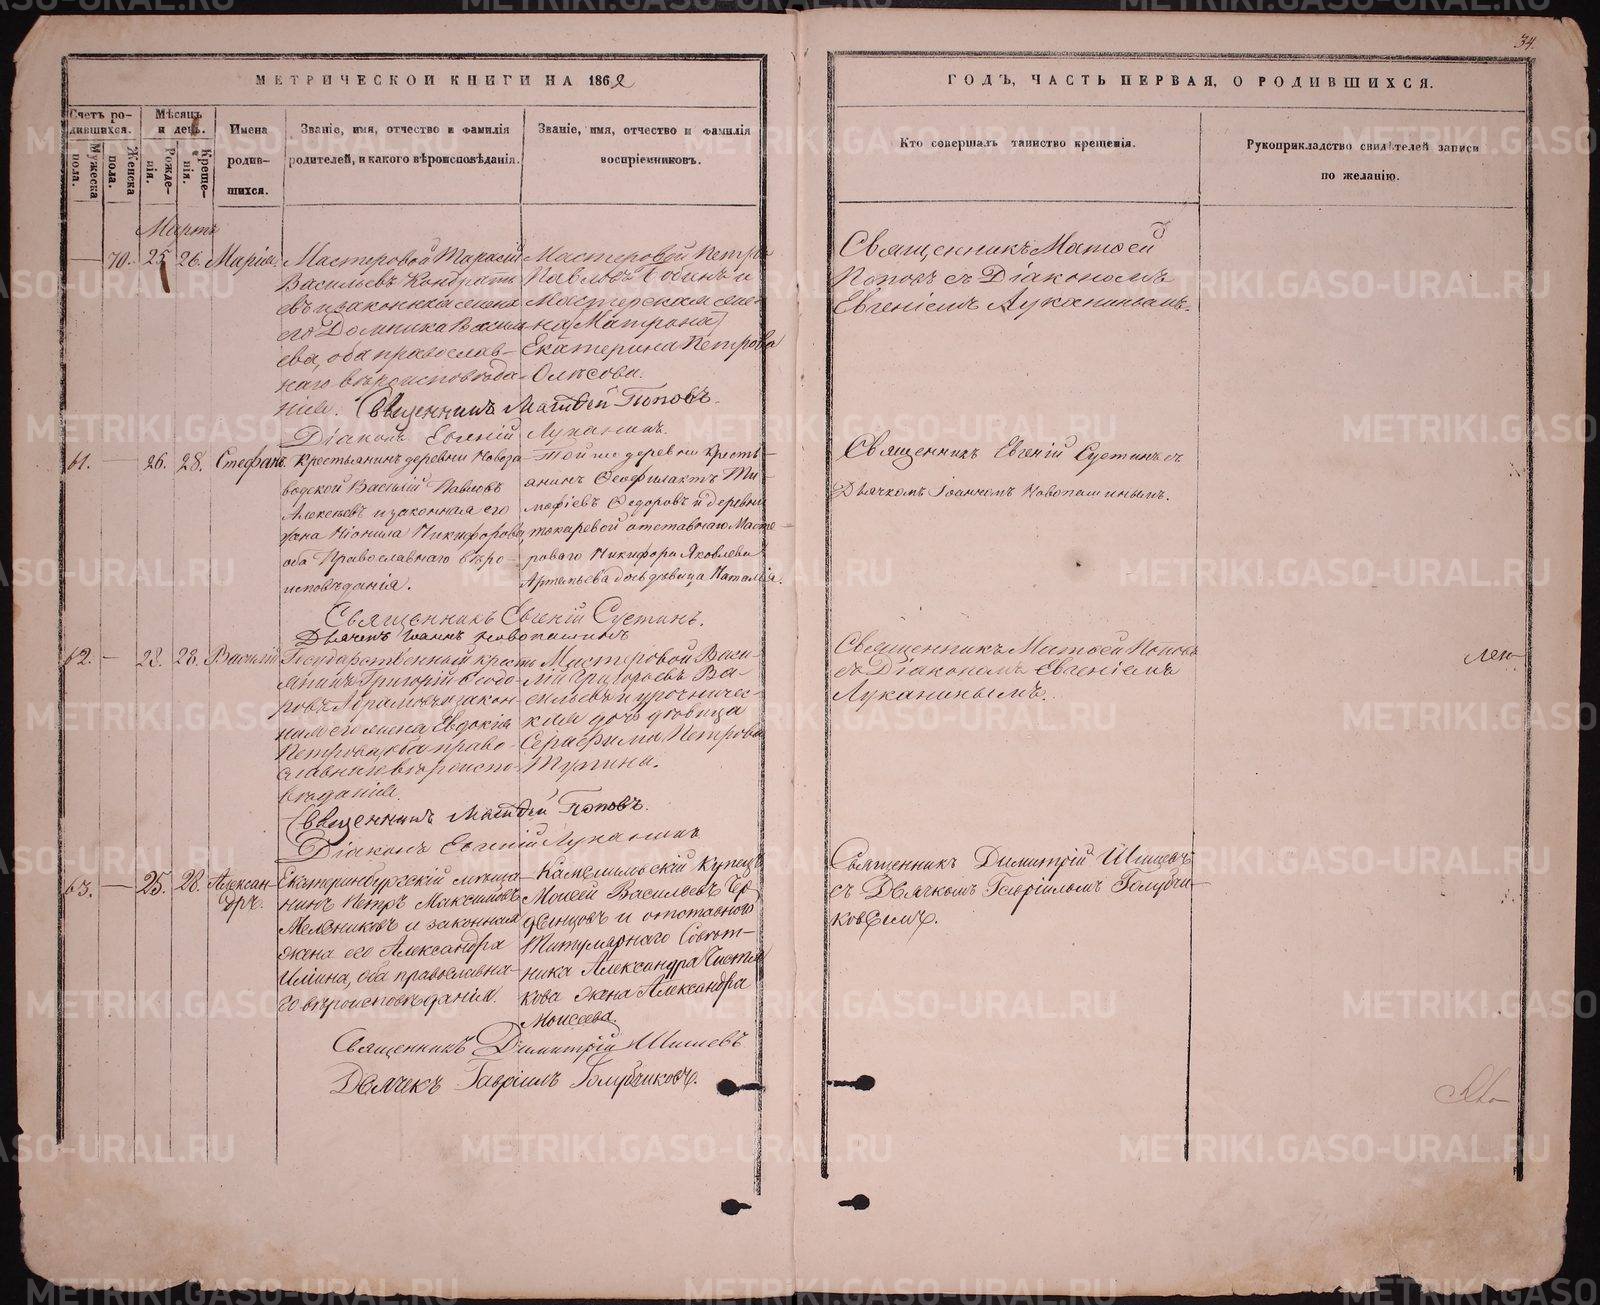 34
МЕТРИЧЕСКОЙ КНИГИ НА 1862
ГОДЪ, ЧАСТЬ ПЕРВАЯ, О РОДИВШИХСЯ.
Счетъ ро-
дившихся.
Мужеска
пола.
Женска
пола.
Мѣсяцъ
и день.
Рожде-
нія.
Креще-
нія.
Имена
родив-
шихся.
Званіе, имя, отчество и фамилія
родителей, и какого вѣроисповѣданія.
Званіе, имя, отчество и фамилія
воспріемниковъ.
Кто совершалъ таинство крещенія.
Рукоприкладство свидѣтелей записи
по желанію.
Мартъ
70. 25 26. Марія.
Мастеровой Тарасій
Васильевъ Кондрать
евъ и законная жена
его Домника Васил
ева, оба православ-
наго вѣроисповѣда-
нія.
Мастеровой Петръ
Павловъ
Екатерина Петрова
Священникъ Матвей Поповъ.
Діаконъ Евгеній Луканинъ.
Священникъ Матвей
Поповъ съ Діакономъ
Евгеніемъ Луканинымъ.
61. 26. 28. Стефанъ.
Крестьянинъ деревни Новоза
водской Василій Павловъ
Алексѣевъ и законная его
жена Неонила Никифорова,
оба Православнаго вѣро-
исповѣданія.
Той же деревни кресть-
янинъ Феофилактъ Ти-
мофіевъ Федоровъ и деревни
токаревой отставнаго Масте-
роваго Никифора Яковлева
Артемьева дочь дѣвица Наталія.
Священникъ Евгеній Сустинъ.
Дьячекъ Іоаннъ Новопашинъ
Священникъ Евгеній Сустинъ съ
Дьячкомъ Іоанномъ Новопашинымъ.
62. 28. 28. Василій
Государственный кресть
янинъ Григорій Ѳедо-
ровъ Абрамовъ и закон-
ная его жена Евдокія
Петрова, оба право-
славнаго вѣроиспо-
вѣданія.
Мастеровой Васи-
лій Григорьевъ Ва-
сильевъ и урочничес-
кая дочь дѣвица
Серафима Петрова
Тупина.
Священникъ Матвей Поповъ.
Діаконъ Евгеній Луканинъ
Священникъ Матвей Поповъ
съ Діакономъ Евгеніемъ
Луканинымъ.
63. 25. 28. Алексан-
дръ.
Екатеринбургскій мѣща-
нинъ Петръ Максимовъ
Мельниковъ и законная
жена его Александра
Ильина, оба православна-
го вѣроисповѣданія.
Камышловскій купецъ
Моисей Васильевъ Чер
двинцовъ и отставнаго
Титулярнаго Совѣт-
ника Александра Чистя
кова жена Александра
Моисеева.
Священникъ Димитрій Шишевъ
Дьячекъ Гавріилъ Голубчиковъ.
Священникъ Димитрій Шишевъ
съ Дьячкомъ Гавріиломъ Голубчи-
ковымъ.
METRIKI.GASO-URAL.RU